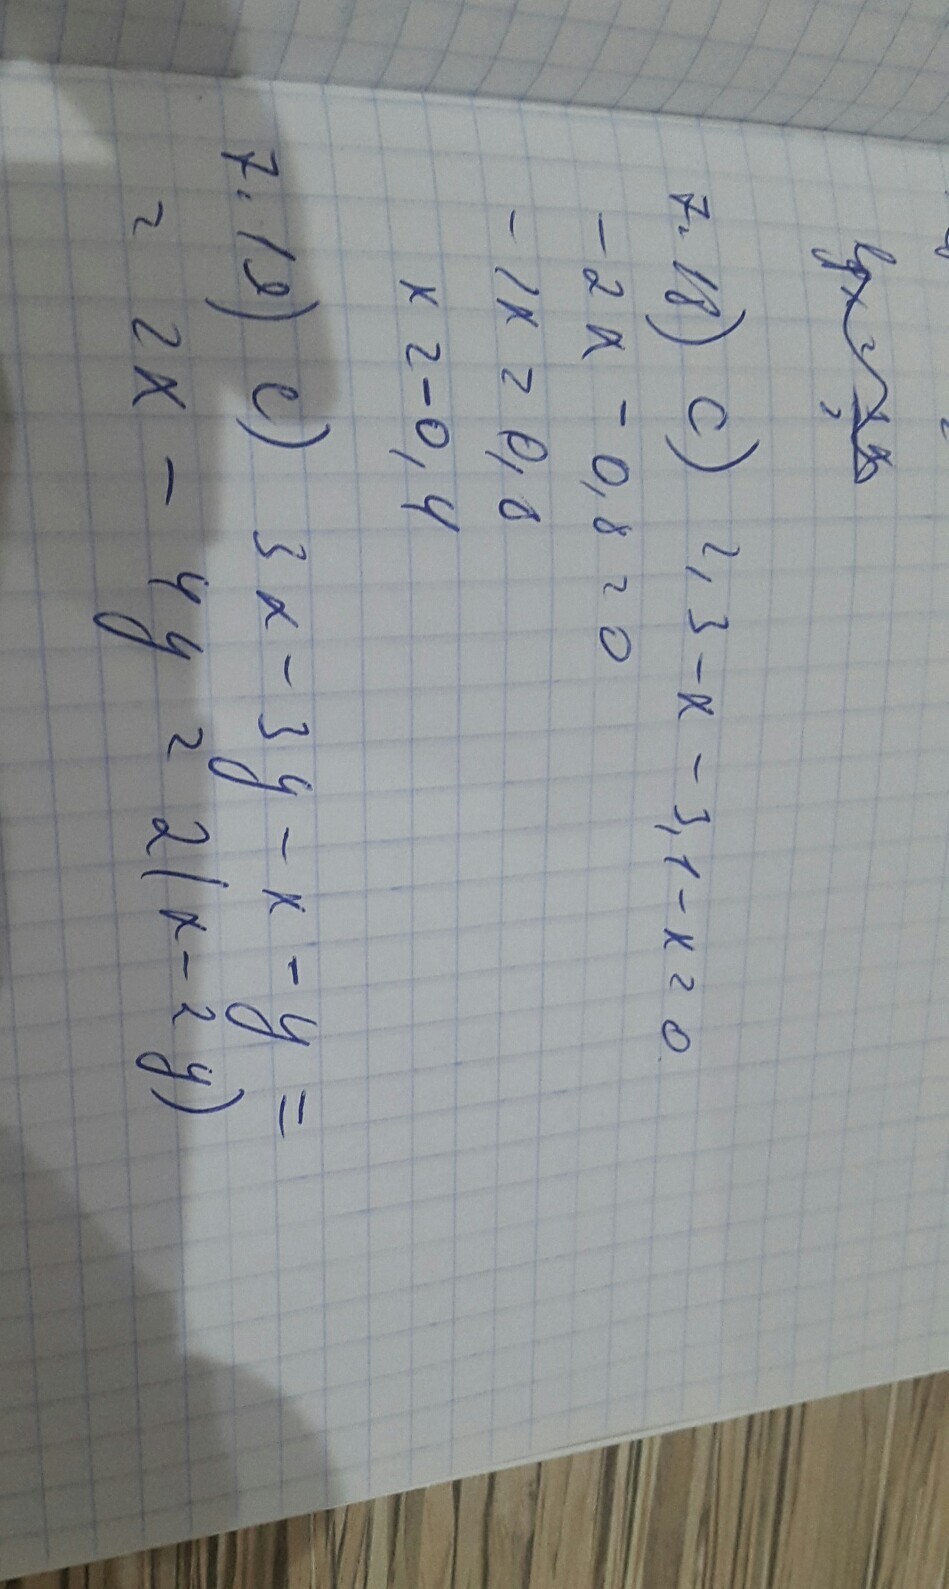 7.18) c) 2,3-x-3,1-x=0
-2x-0,8=0
-2x=0,8
x=-0,4
7.19) c) 3x-3y-x-y=
=2x-4y=2(x-2y)